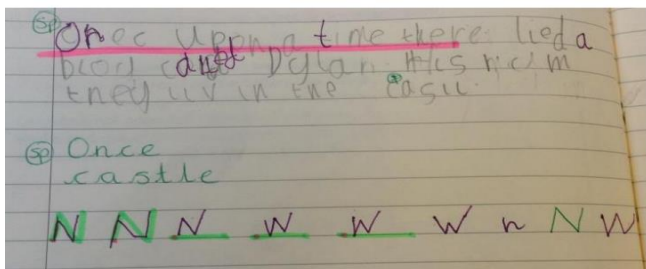 sp Onec upon a time there lied a
bioy caned Dylan. His n c m
they liv in the casu.
sp Once
castle
N N N W W W n N W